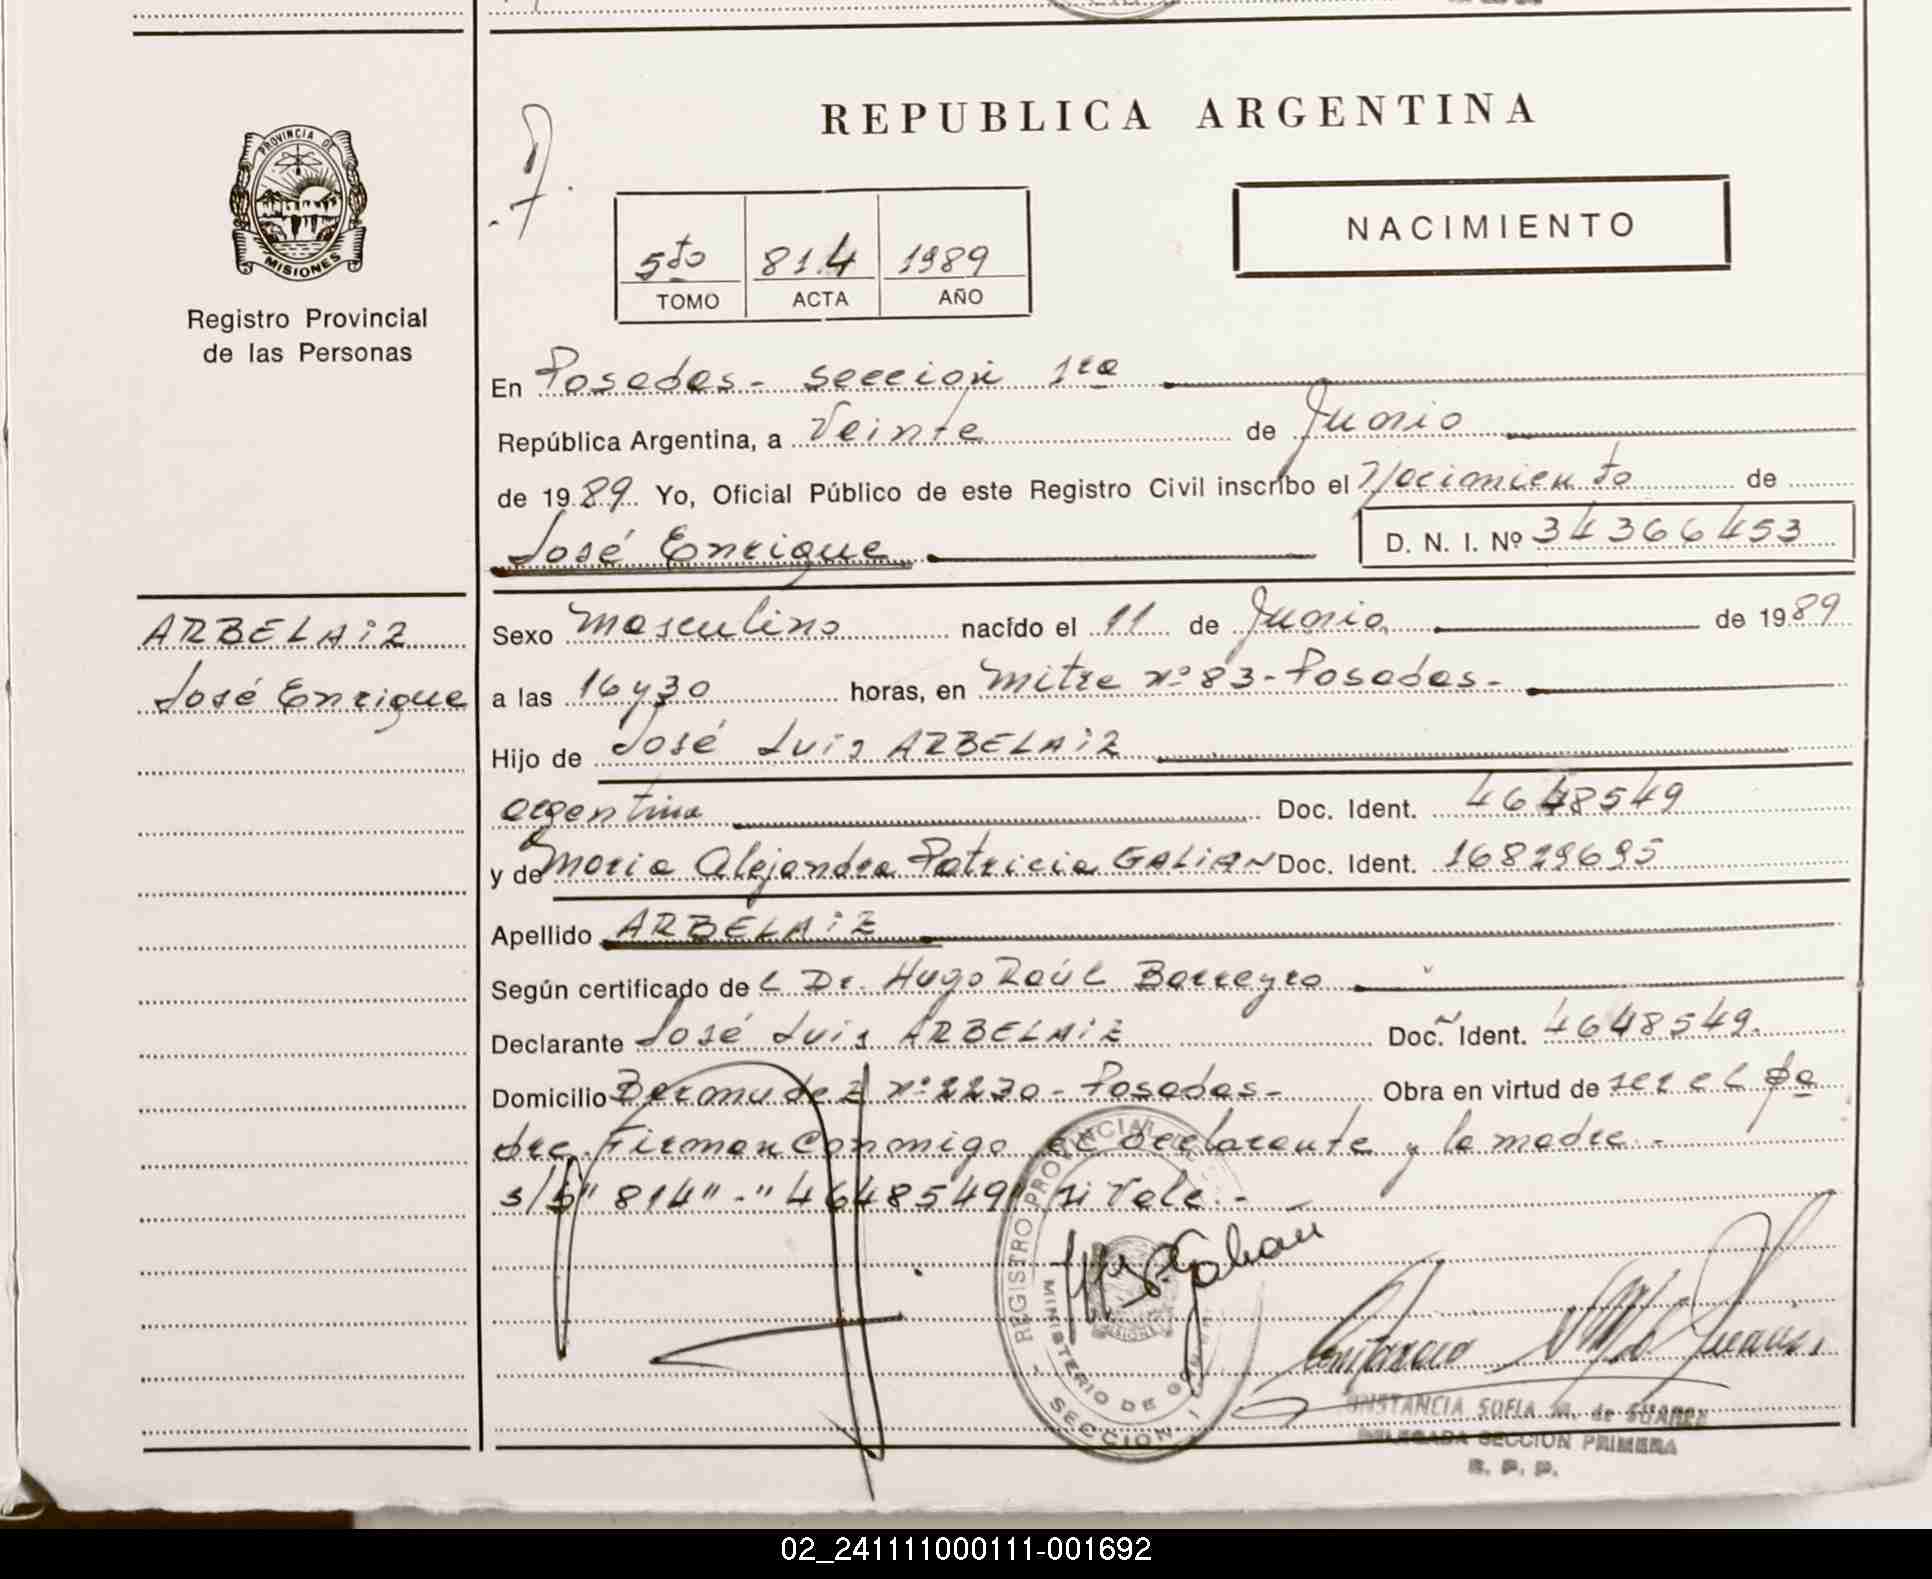 REPUBLICA ARGENTINA
PROVINCIA DE
MISIONES
Registro Provincial
de las Personas
NACIMIENTO
5to 814 1989
TOMO ACTA AÑO
En Posadas - sección 1ra
República Argentina, a Veinte de Junio
de 1989 Yo, Oficial Público de este Registro Civil inscribo el Nacimiento de
José Enrique D. N. I. Nº 34366453
ARBELAiZ
José Enrique
Sexo Masculino nacido el 11 de Junio de 1989
a las 16 y 30 horas, en Mitre nº 83 - Posadas -
Hijo de José Luis ARBELAiZ
argentina Doc. Ident. 4648549
y de Maria Alejandra Patricia GALiAN Doc. Ident. 16829695
Apellido ARBELAiZ
Según certificado del Dr. Hugo Raúl Barreyro
Declarante José Luis ARBELAiZ Doc. Ident. 4648549.
Domicilio Bermudez nº 2230 - Posadas - Obra en virtud de ser el pa
dre. Firman conmigo el declarante y la madre. -
s/b" 814" - " 4648549" si Vale. -
REGISTRO PROVINCIAL DE
MINISTERIO DE
SECCION I
CONSTANCIA SOFIA M. de SUAREZ
DELEGADA SECCION PRIMERA
R. P. P.
02_241111000111-001692